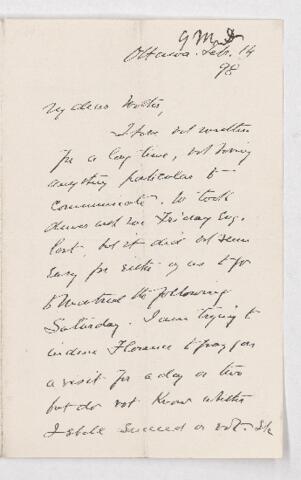 Ottawa. Feb. 14
98
My dear
I have not written
for a long time, not having
anything particular to
communicate. We took
dinner with Friday evg.
last, but it did not seem
easy for either of us to go
to Montreal the following
Saturday. I am trying to
induce Florence to pay you
a visit for a day or two
but do not know whether
I shall succeed or not. She